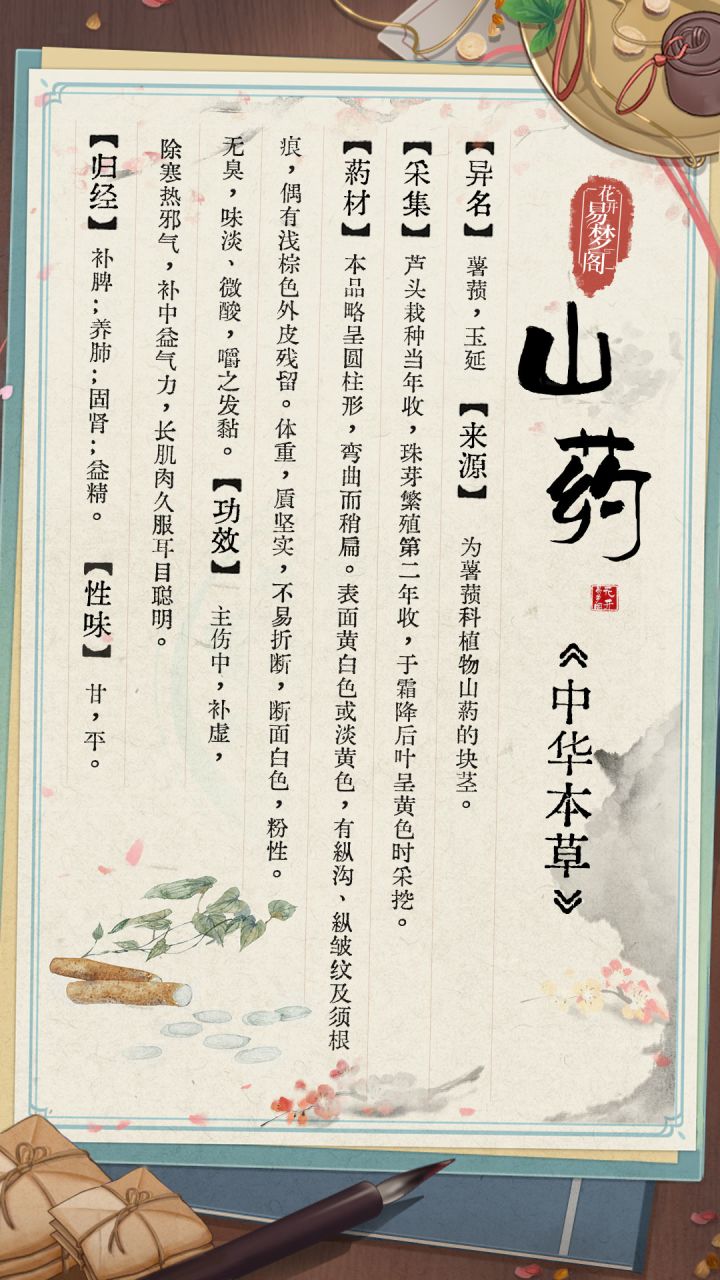 花开
易梦阁
山药
《中华本草》
【异名】 薯蓣，玉延 【来源】 为薯蓣科植物山药的块茎。
【采集】 芦头栽种当年收，珠芽繁殖第二年收，于霜降后叶呈黄色时采挖。
【药材】 本品略呈圆柱形，弯曲而稍扁。表面黄白色或淡黄色，有纵沟、纵皱纹及须根
痕，偶有浅棕色外皮残留。体重，质坚实，不易折断，断面白色，粉性。
无臭，味淡、微酸，嚼之发黏。【功效】 主伤中，补虚，
除寒热邪气，补中益气力，长肌肉久服耳目聪明。
【归经】 补脾；养肺；固肾；益精。 【性味】 甘，平。